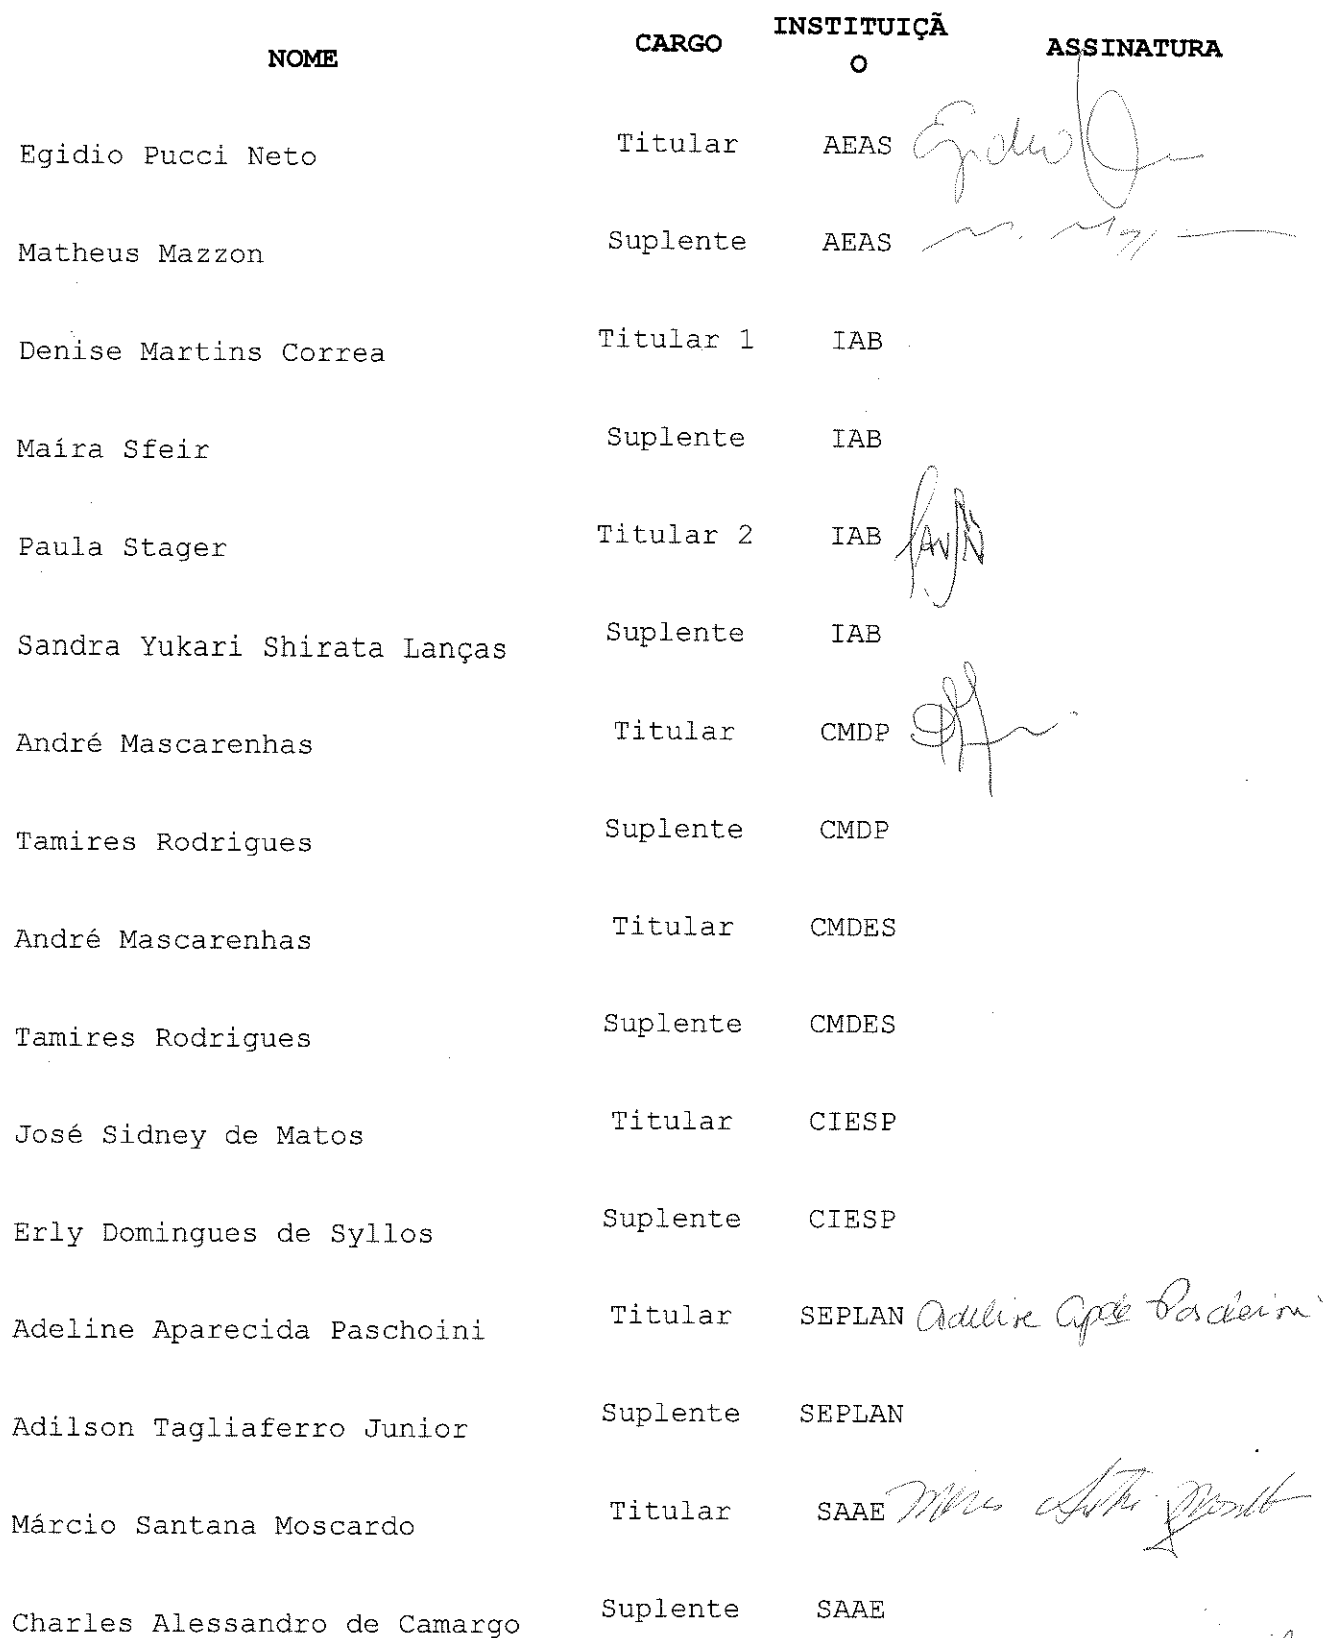 NOME CARGO INSTITUIÇÃ
O ASSINATURA
Egidio Pucci Neto Titular AEAS Egidio
Matheus Mazzon Suplente AEAS
Denise Martins Correa Titular 1 IAB
Maíra Sfeir Suplente IAB
Paula Stager Titular 2 IAB
Sandra Yukari Shirata Lanças Suplente IAB
André Mascarenhas Titular CMDP
Tamires Rodrigues Suplente CMDP
André Mascarenhas Titular CMDES
Tamires Rodrigues Suplente CMDES
José Sidney de Matos Titular CIESP
Erly Domingues de Syllos Suplente CIESP
Adeline Aparecida Paschoini Titular SEPLAN Adeline Apdª Paschoini
Adilson Tagliaferro Junior Suplente SEPLAN
Márcio Santana Moscardo Titular SAAE
Charles Alessandro de Camargo Suplente SAAE